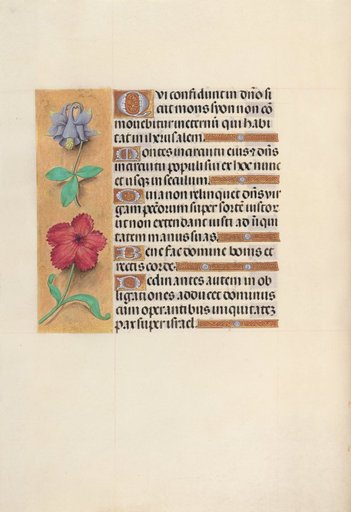 Qui confidunt in dño si
cut mons syon non cō
mouebitur in eternū qui habi
tat in ihrusalem.
Montes in circuitu eius ⁊ dñs
in circuitu populi sui ex hoc nunc
et usq; in seculum.
Quia non relinquet dñs vir
gam pctorum super sortē iustor
ut non extendant iusti ad iniqui
tatem manus suas.
Bene fac domine bonis et
rectis corde.
Declinantes autem in ob
ligationes adducet dominus
cum operantibus iniquitatē
pax super israel.